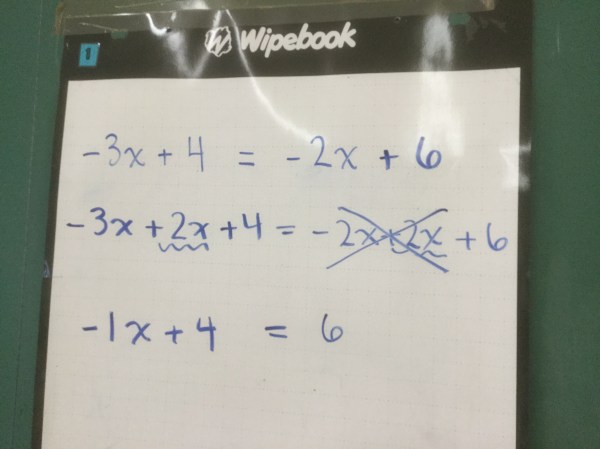 1
Wipebook
-3x + 4 = -2x + 6
-3x + 2x + 4 = -2x + 2x + 6
-1x + 4 = 6